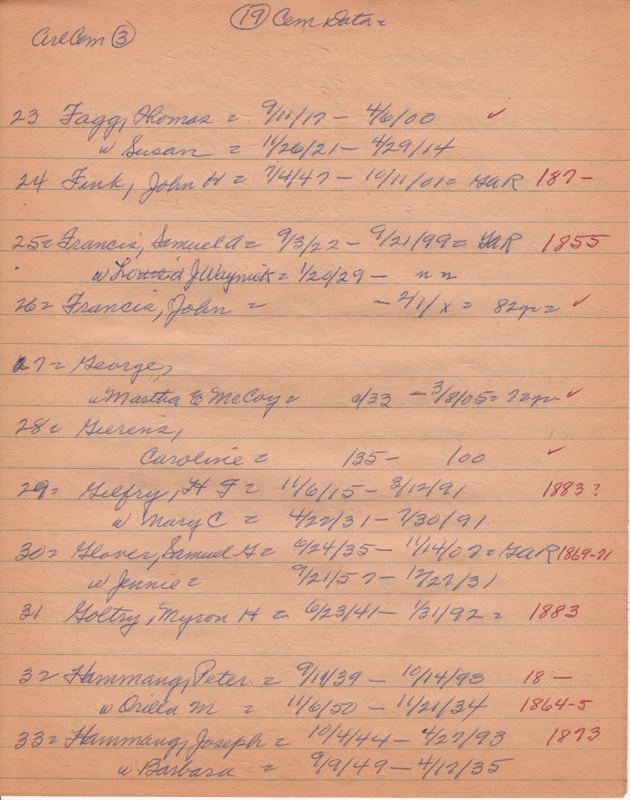 (19) Cem Data =
ArlCem (3)
23 Fagg, Thomas = 9/11/17 - 4/6/00 ✓
w Susan = 11/26/21 - 4/29/14
24 Fink, John H = 7/4/47 - 10/11/01 = GAR 187-
25 = Francis, Samuel A = 9/3/22 - 9/21/99 = GAR 1855
w J Waynick = 1/20/29 - n n
26 = Francis, John = - 2/1/x = 82yr = ✓
27 = George,
w Martha E McCoy = c/33 - 3/8/05 = 72yr ✓
28 = Gierens,
Caroline = /35 - /00 ✓
29 = Gilfry, H F = 11/6/15 - 3/12/91 1883?
w Mary C = 4/22/31 - 7/30/91
30 = Glover, Samuel G = 6/24/35 - 11/14/07 = GAR 1869-71
w Jennie = 9/21/57 - 12/27/31
31 Goltry, Myron H = 6/23/41 - 1/31/92 = 1883
32 = Hammang, Peter = 9/19/39 - 10/14/93 18 -
w Orilla M = 11/6/50 - 11/21/34 1864-5
33 = Hammang, Joseph = 10/4/44 - 4/27/93 1873
w Barbara = 9/9/49 - 4/17/35